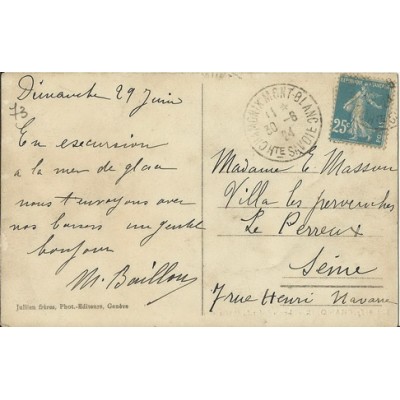 Dimanche 29 Juin
73
En excursion
a la mer de glace
nous t envoyons avec
nos baisers un gentil
bonjour
M. Baillou
Jullien frères, Phot.-Editeurs, Genève
CHAMONIX MONT-BLANC
11 *
30 - 6
24
Hte SAVOIE
25c
Madame E. Masson
Villa les pervenches
Le Perreux
Seine
7 rue Henri Navarre